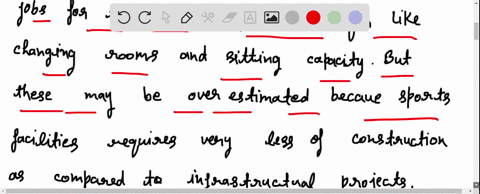 jobs for like
changing rooms and sitting capacity. But
these may be over estimated becaue sports
facilities requires very less of construction
as compared to infrastructual projects.